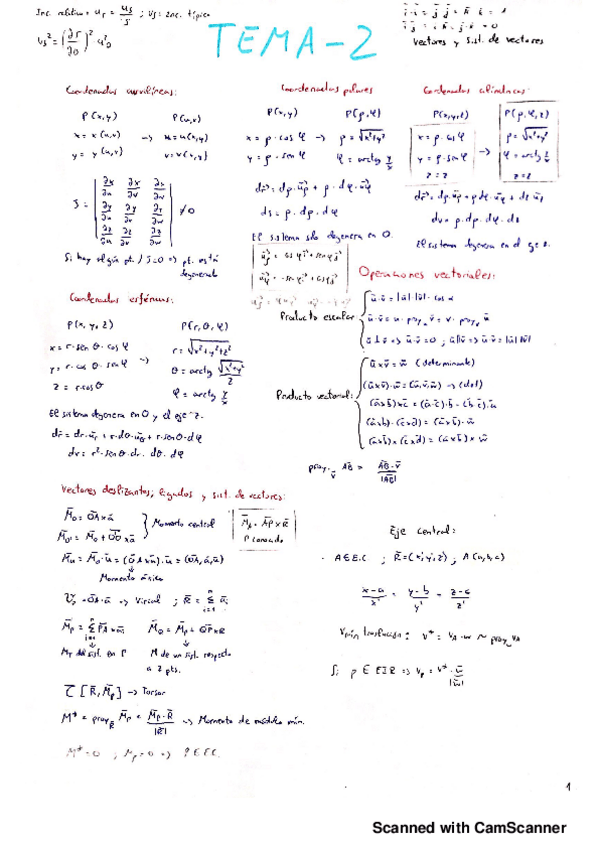 Inc. relativa = u_r = u_s/s ; u_s = inc. típica
u_s² = (∂r/∂o)² u²_o
TEMA-2
ī·ī = j̄·j̄ = k̄·k̄ = 1
ī·j̄ = ī·k̄ = j̄·k̄ = 0
Vectores y sist. de vectores
Coordenadas curvilíneas:
P(x,y) P(u,v)
x = x(u,v) → u = u(x,y)
y = y(u,v) v = v(x,y)
J = | ∂x/∂u ∂x/∂v ∂x/∂w |
| ∂y/∂u ∂y/∂v ∂y/∂w | ≠ 0
| ∂z/∂u ∂z/∂v ∂z/∂w |
Si hay algún pt. / J=0 => pt. está
degenerado
Coordenadas polares
P(x,y) P(ρ,φ)
x = ρ·cos φ → ρ = √x²+y²
y = ρ·sen φ φ = arctg y/x
dr̄ = dρ·ūρ + ρ·dφ·ūφ
ds = ρ·dρ·dφ
El sistema solo degenera en O.
ūρ = cos φ ī + sen φ j̄
ūφ = -sen φ ī + cos φ j̄
Coordenadas cilíndricas
P(x,y,z) P(ρ,φ,z)
x = ρ·cos φ → ρ = √x²+y²
y = ρ·sen φ φ = arctg y/x
z = z z = z
dr̄ = dρ·ūρ + ρ dφ·ūφ + dz ūz
dv = ρ·dρ·dφ·dz
El sistema degenera en el eje z.
Coordenadas esféricas:
P(x,y,z) P(r,θ,φ)
x = r·sen θ·cos φ r = √x²+y²+z²
y = r·cos θ·sen φ → θ = arctg √x²+y²/z
z = r cos θ φ = arctg y/x
El sistema degenera en O y el eje z.
dr̄ = dr·ūr + r·dθ·ūθ + r·senθ·dφ
dv = r²·senθ·dr·dθ·dφ
Operaciones vectoriales:
Producto escalar
ū·v̄ = |ū|·|v̄|·cos α
ū·v̄ = u·proy_u v̄ = v·proy_v ū
ū⊥v̄ => ū·v̄ = 0 ; ū∥v̄ => ū·v̄ = |ū|·|v̄|
Producto vectorial:
ū×v̄ = w̄ (determinante)
(ū×v̄)·w̄ = (ū,v̄,w̄) → (det)
(ā×b̄)×c̄ = (ā·c̄)·b̄ - (b̄·c̄)·ā
(ā×b̄)·(c̄×d̄) = (ā×b̄)·w̄
(ā×b̄)×(c̄×d̄) = (ā×b̄)×w̄
proy_v̄ AB̄ = AB̄·v̄/|AB̄|
Vectores deslizantes, ligados y sist. de vectores:
M̄o = OĀ×ā
M̄o' = M̄o + O'Ō×ā } Momento central
M̄p = AP̄×R̄
P conocido
M̄u = M̄o·ū = (OĀ×ā)·ū = (OĀ,ā,ū)
Momento áxico
V_o = OĀ·ā → Virial ; R̄ = Σ āi
M̄p = Σ PĀ×āi M̄Q = M̄p + QP̄×R
MT del sist. en P M de un sist. respecto
a 2 pts.
τ [R̄, M̄p] → Torsor
M* = proy_R̄ M̄p = M̄p·R̄/|R̄| → Momento de módulo mín.
M* = 0 ; M̄p = 0 => P∈E.C.
Eje central:
· A∈E.C ; R̄ = (x',y',z') ; A(a,b,c)
x-a/x' = y-b/y' = z-c/z'
V mín traslación: v* = v_A·w ~ proy v_A
Si p ∈ EIR => v_p = v* · w̄/|w̄|
1
Scanned with CamScanner